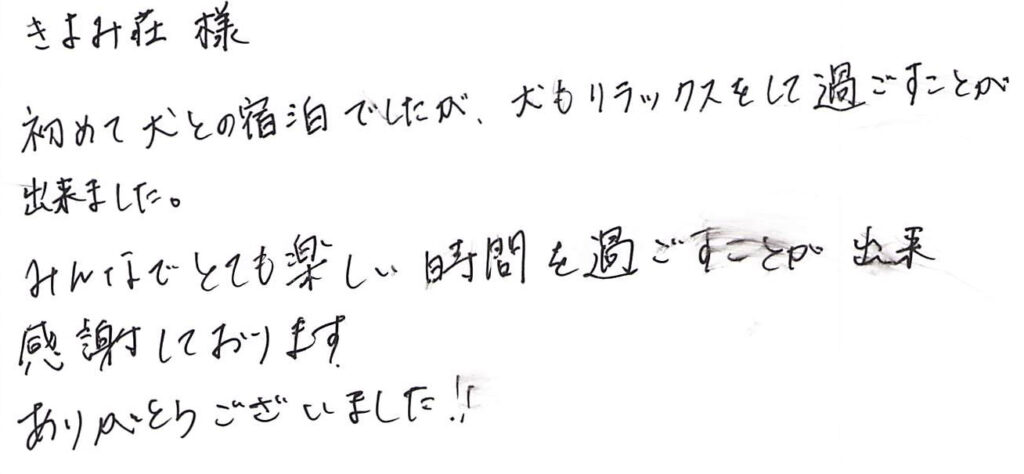 きよみ荘 様
初めて犬との宿泊でしたが、犬もリラックスをして過ごすことが
出来ました。
みんなでとても楽しい時間を過ごすことが出来
感謝しております
ありがとうございました!!